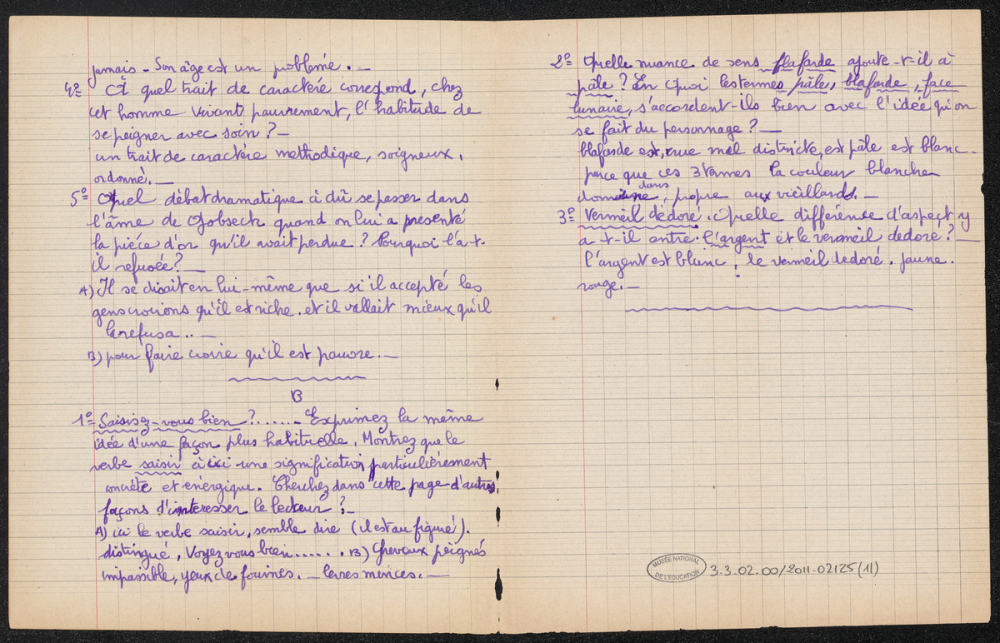 jamais - Son âge est un problème. -
4º À quel trait de caractère correspond, chez
cet homme vivant pauvrement, l'habitude de
se peigner avec soin ? -
un trait de caractère méthodique, soigneux,
ordonné. -
5º Quel débat dramatique à dû se passer dans
l'âme de Gobseck quand on lui a présenté
la pièce d'or qu'il avait perdue ? Pourquoi l'a-t-
il refusée ? -
A) Il se disait en lui-même que si il accepté les
gens croirons qu'il est riche. et il vallait mieux qu'il
le refusa .. -
B) pour faire croire qu'il est pauvre. -
B
1º Saisisez-vous bien ?....... Exprimez la même
idée d'une façon plus habituelle. Montrez que le
verbe saisir à ici une signification particulièrement
concrète et énergique. Cherchez dans cette page d'autres
façons d'intéresser le lecteur ? -
A) ici le verbe saisir, semble dire (il est au figuré).
distingué, Voyez vous bien...... B) Cheveux peignés
impassible, yeux de fouines. - lèvres minces. -
2º Quelle nuance de sens blafarde ajoute-t-il à
pâle ? En quoi les termes pâle, blafarde, face
lunaire, s'accordent-ils bien avec l'idée qu'on
se fait du personnage ? -
blafarde est, rue mal districte, est pâle est blanc -
parce que ces 3 termes la couleur blanche
domine, dans propre aux vieillards. -
3º Vermeil dédoré. Quelle différence d'aspect y
a-t-il entre l'argent et le vermeil dédoré ? -
l'argent est blanc, le vermeil dédoré. jaune.
rouge. -
MUSÉE NATIONAL
DE L'ÉDUCATION
3.3.02.00/2011-02125(11)